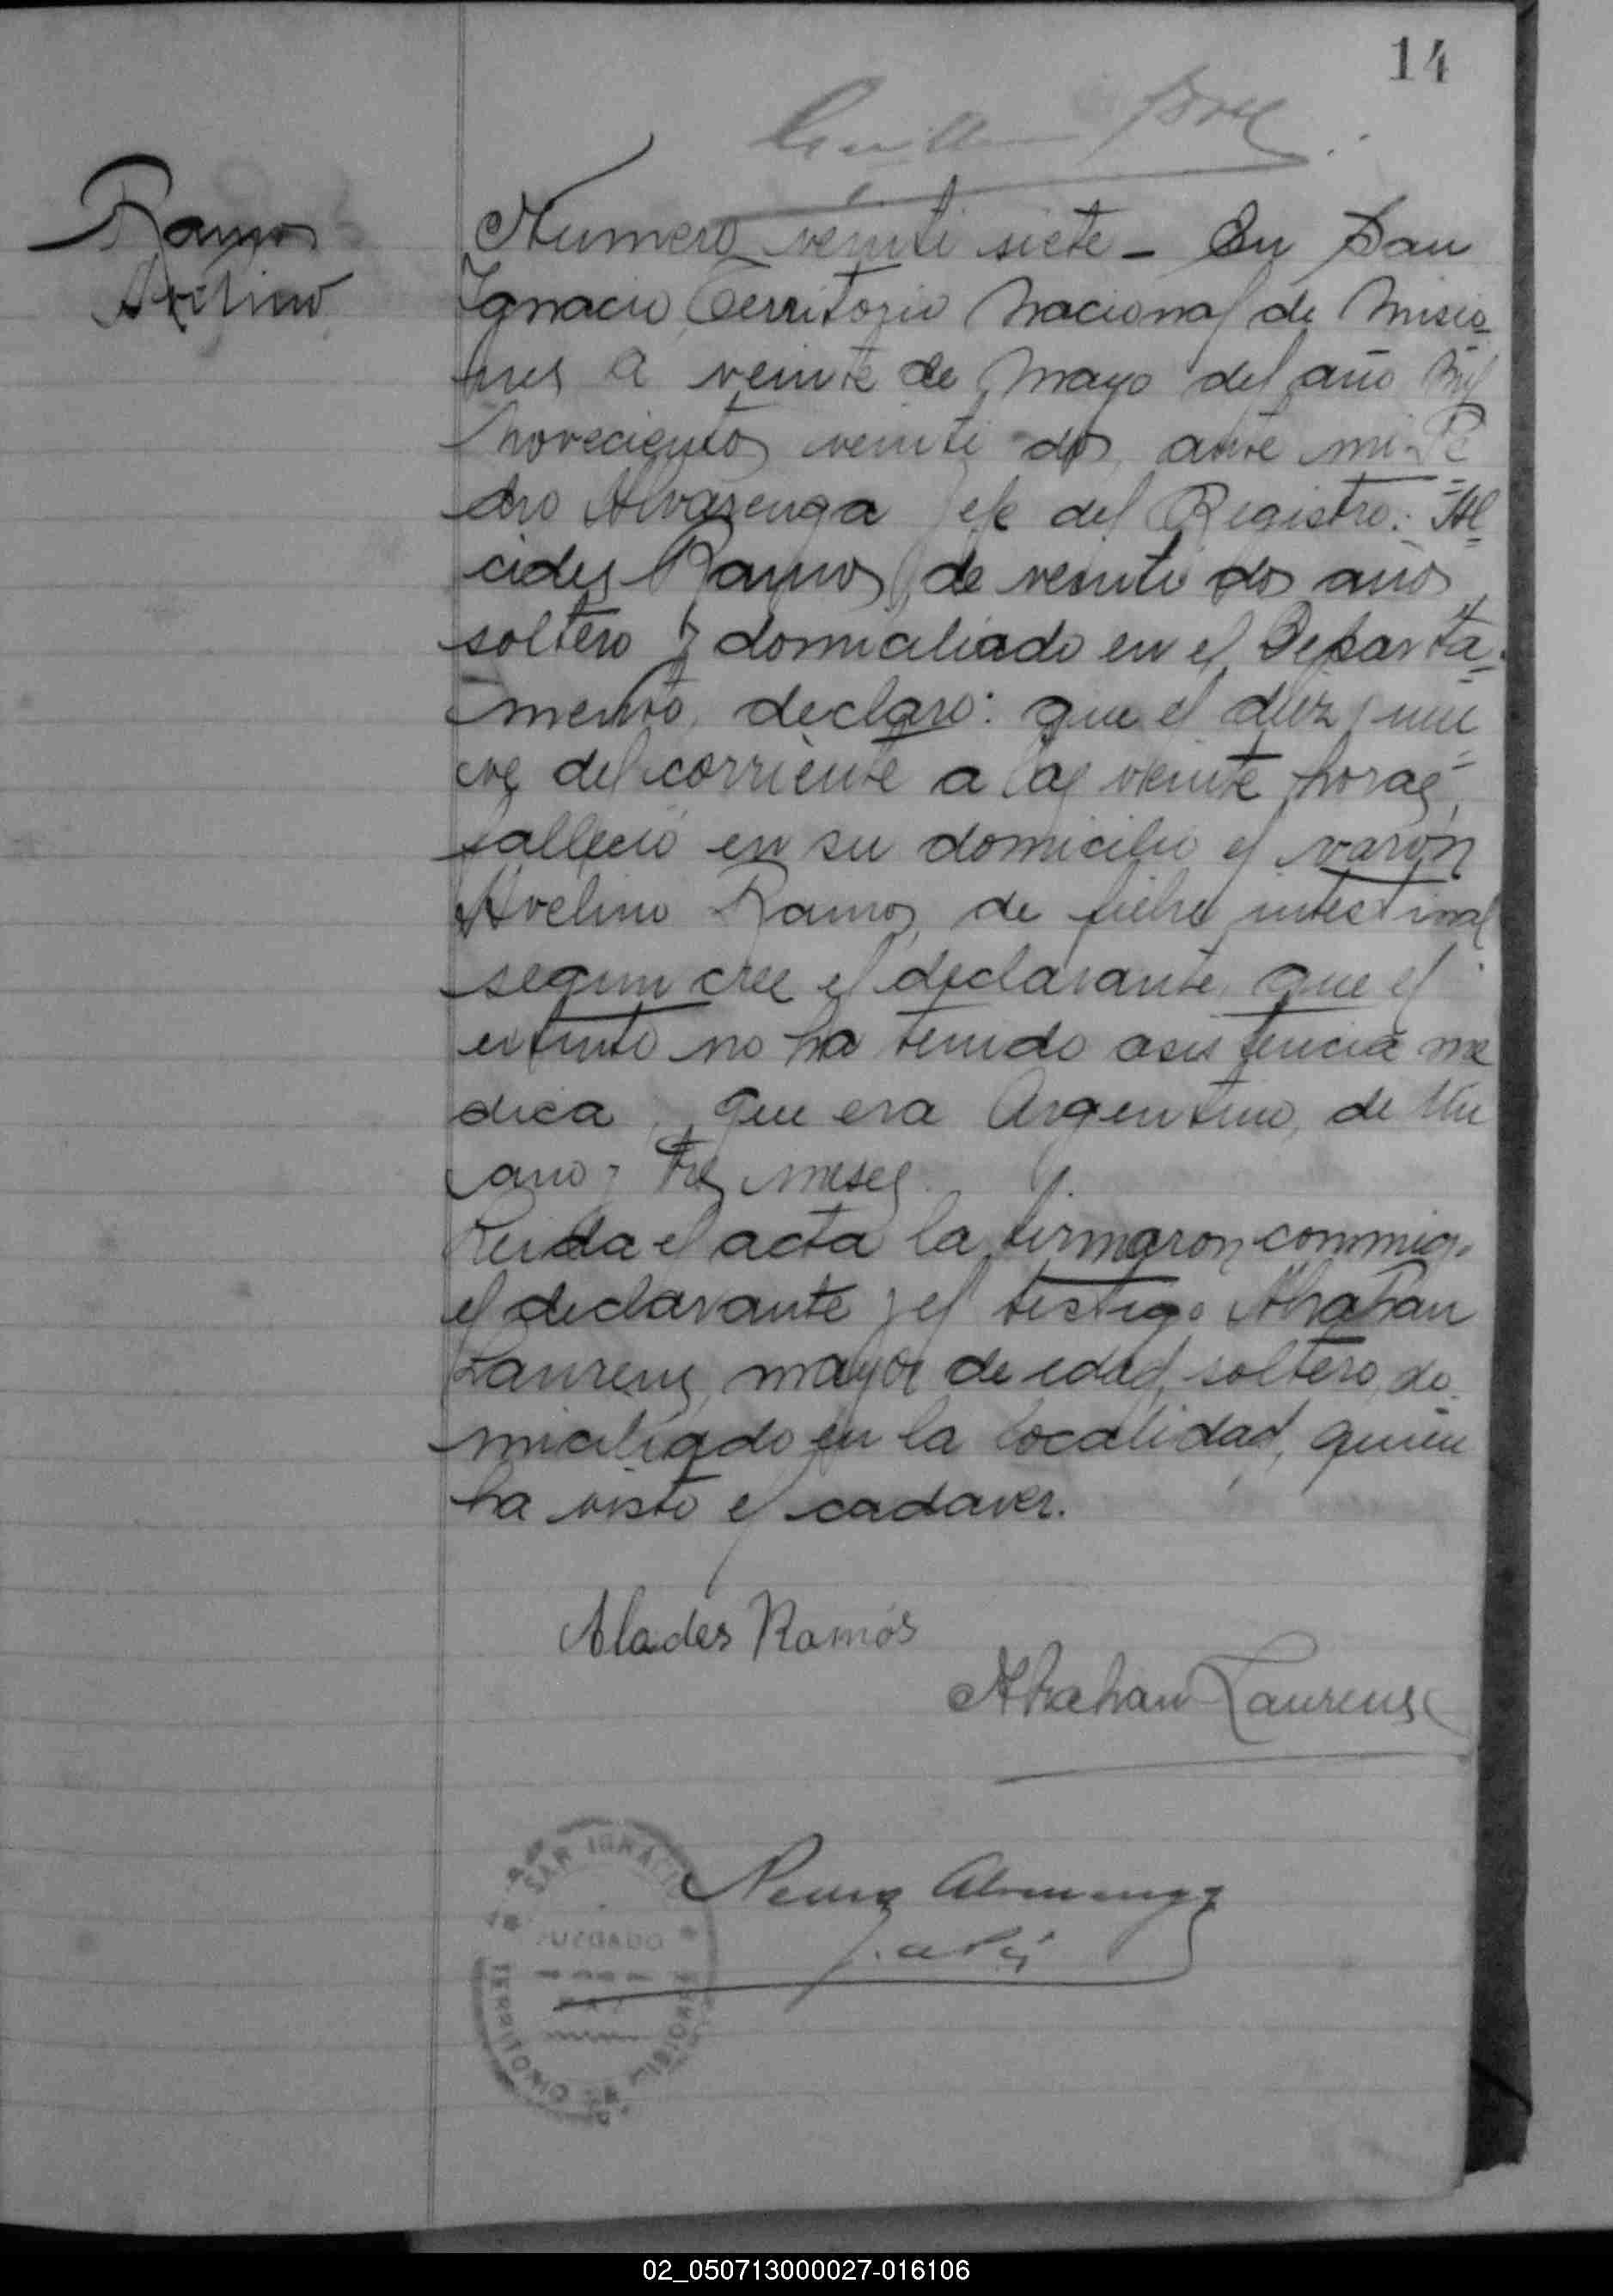 14
Ramos
Avelino
Numero veinti siete - En San
Ignacio, Territorio Nacional de Misio
nes a veinte de Mayo del año mil
novecientos veinti dos, ante mi Pe
dro Alvarenga Jefe del Registro: Al
cides Ramos, de veinti dos años
soltero y domiciliado en el Departa
mento, declaro: que el diez y nue
ve del corriente a las veinte horas,
fallecio en su domicilio el varón
Avelino Ramos, de fiebre intestinal
segun cree el declarante, que el
extinto no ha tenido asistencia me
dica, que era Argentino, de Un
año y tres meses.
Leida el acta la firmaron conmigo
el declarante y el testigo Abrahan
Laurens, mayor de edad, soltero, do
miciliado en la localidad, quien
ha visto el cadaver.
Alcides Ramos
Abrahan Laurens
SAN IGNACIO
JUZGADO
TERRITORIO DE MISIONES
Alvarenga
02_050713000027-016106